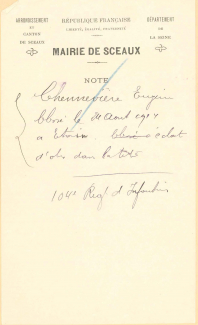 ARRONDISSEMENT
ET
CANTON
DE SCEAUX
RÉPUBLIQUE FRANÇAISE
LIBERTÉ, ÉGALITÉ, FRATERNITÉ
DÉPARTEMENT
DE
LA SEINE
MAIRIE DE SCEAUX
NOTE
Chennevière Eugène
le 24 Août 1914
à
d'obus dans
104e Regt d'Infanterie